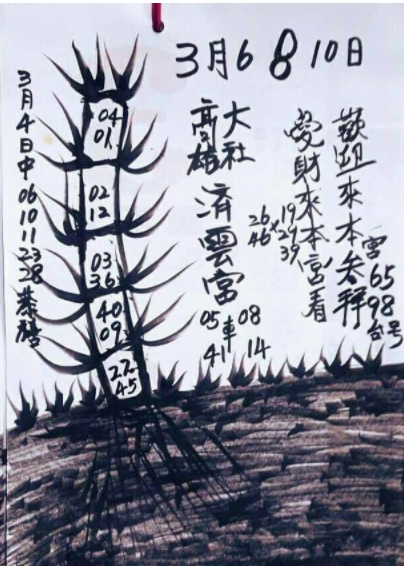 3月6 8 10日
歡迎來本宮參拜
65
98
台号
愛財來本宮看
19
29
39
×
26
46
高雄大社
濟雲宮
05車08
41 14
3月4日中06 10 11 23 28恭賀
04
01
02
12
03
36
40
09
27
45